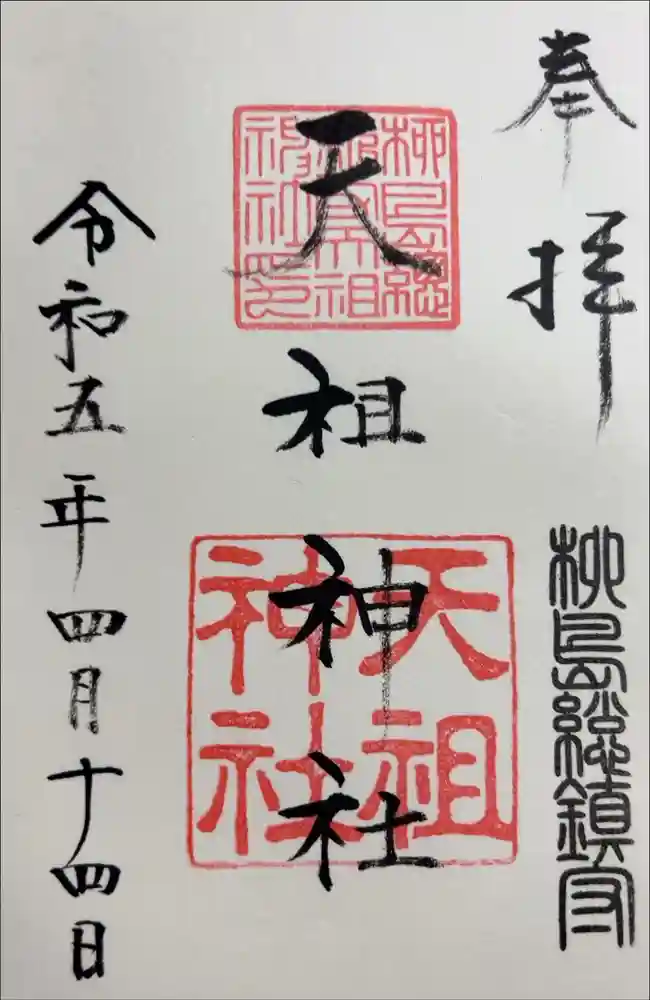 奉拝
柳島總鎮守
天祖神社
柳島總鎮守天祖神社印
天祖神社
令和五年四月十四日